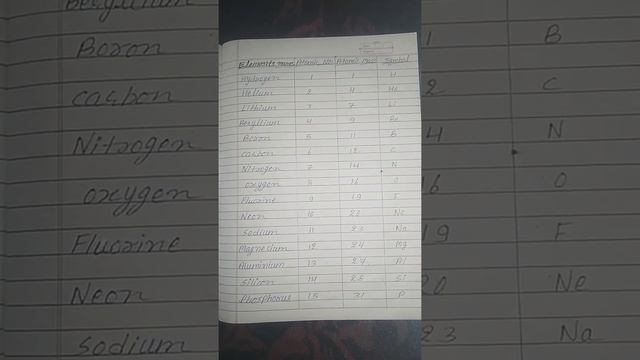 Elements name Atomic No. Atomic Mass Symbol
Hydrogen 1 1 H
Helium 2 4 He
Lithium 3 7 Li
Beryllium 4 9 Be
Boron 5 11 B
Carbon 6 12 C
Nitrogen 7 14 N
Oxygen 8 16 O
Fluorine 9 19 F
Neon 10 20 Ne
Sodium 11 23 Na
Magnesium 12 24 Mg
Aluminium 13 27 Al
Silicon 14 28 Si
Phosphorus 15 31 P
Beryllium
Boron 1 B
Carbon 2 C
Nitrogen 4 N
Oxygen 16 O
Fluorine 19 F
Neon 20 Ne
Sodium 23 Na